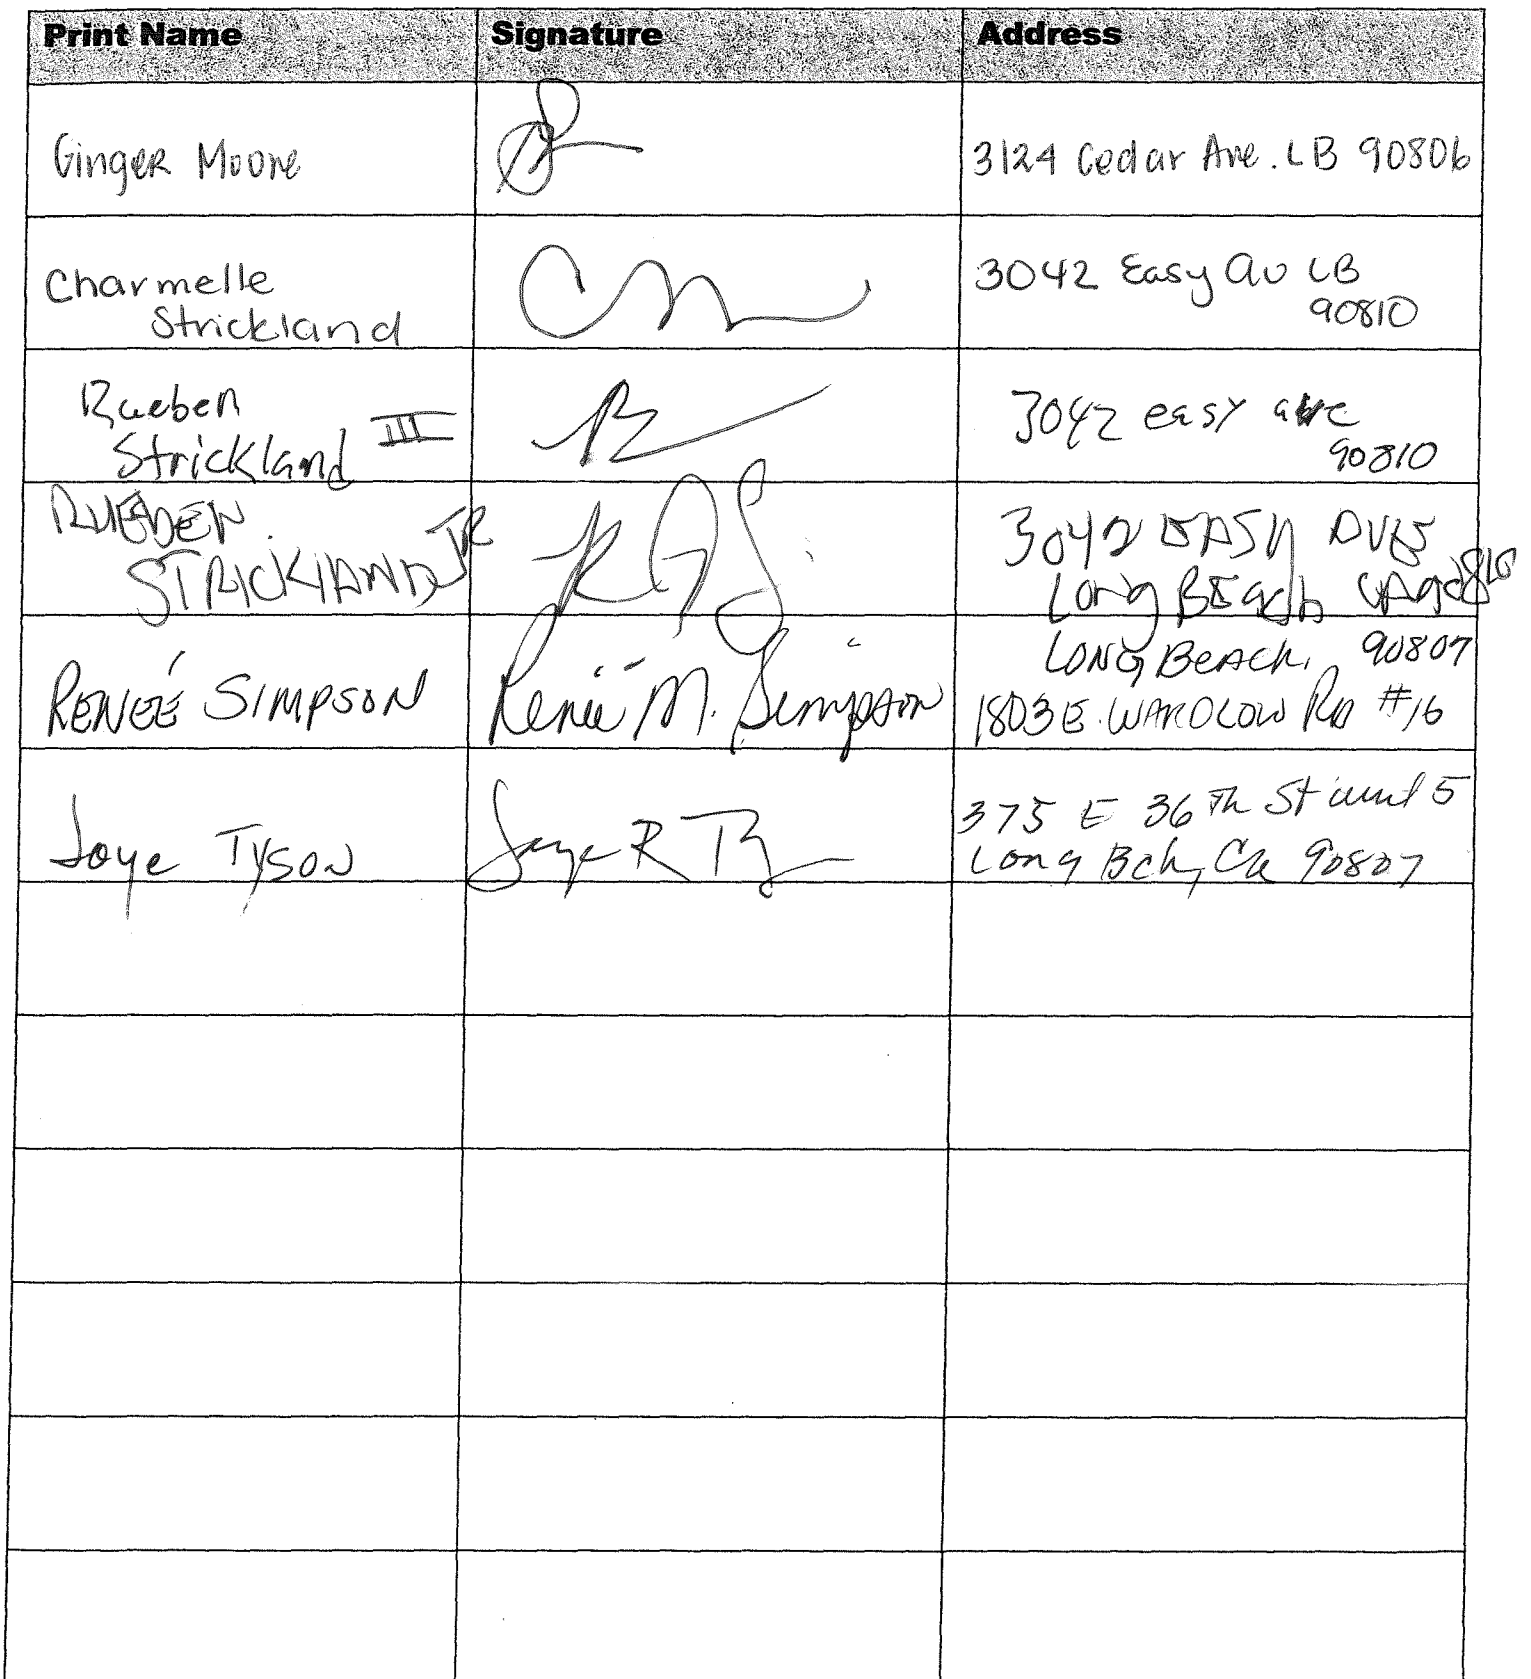 Print Name Signature Address
Ginger Moore 3124 Cedar Ave. LB 90806
Charmelle
Strickland
3042 Easy Av LB
90810
Rueben
Strickland III
3042 easy ave
90810
RUEBEN
STRICKLAND JR
3042 EASY AVE
Long BEach CA 90810
RENEÉ SIMPSON Reneé M. Simpson
LONG BEACH, 90807
1803 E. WARDLOW RD #16
Joye TYSON Joye R Ty
375 E 36 Th St unit 5
Long Bch, Ca 90807